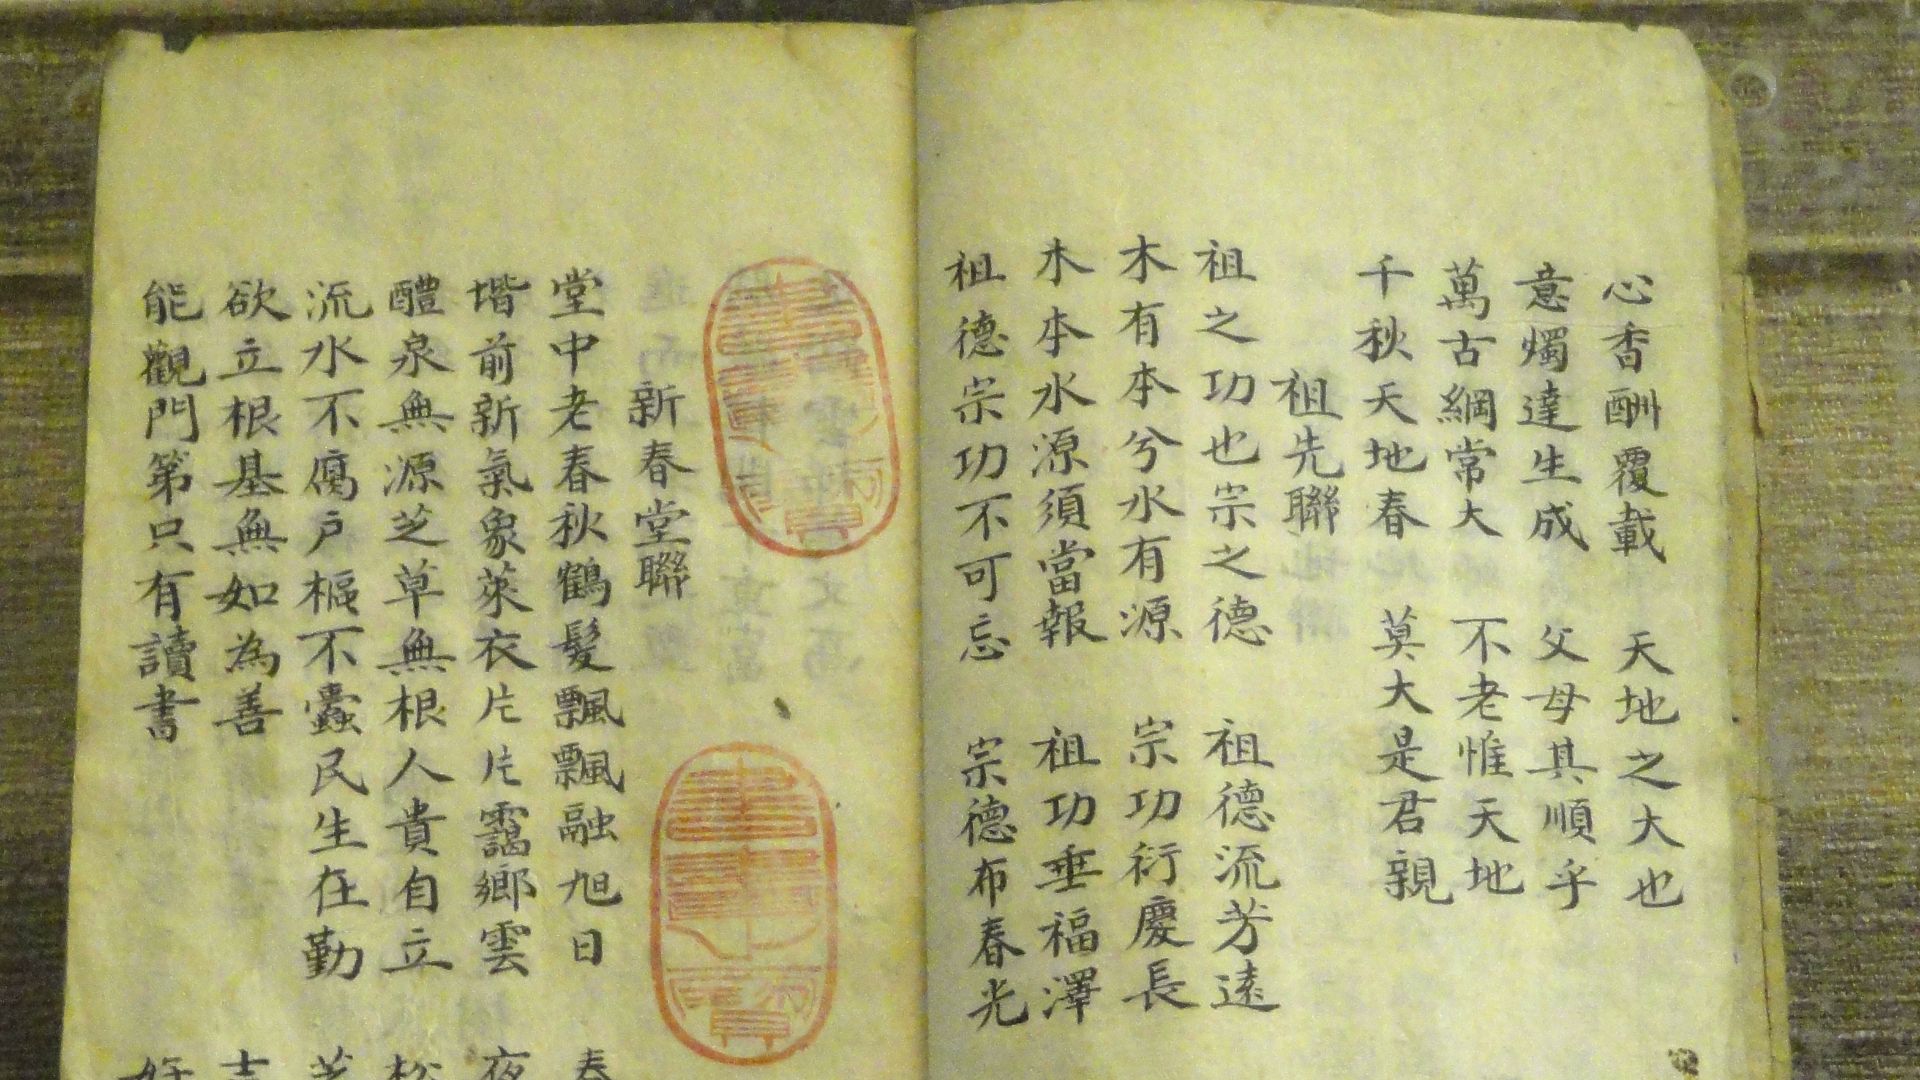 心香酬覆載 天地之大也
意燭達生成 父母其順乎
萬古綱常大 不老惟天地
千秋天地春 莫大是君親
祖先聯
祖之功也宗之德 祖德流芳遠
木有本兮水有源 宗功衍慶長
木本水源須當報 祖功垂福澤
祖德宗功不可忘 宗德布春光
新春堂聯
堂中老春秋鶴髮飄飄融旭日 春
堦前新氣象萊衣片片靄鄉雲 夜
醴泉無源芝草無根人貴自立 松
流水不腐戶樞不蠹民生在勤 芝
欲立根基無如為善
能觀門第只有讀書